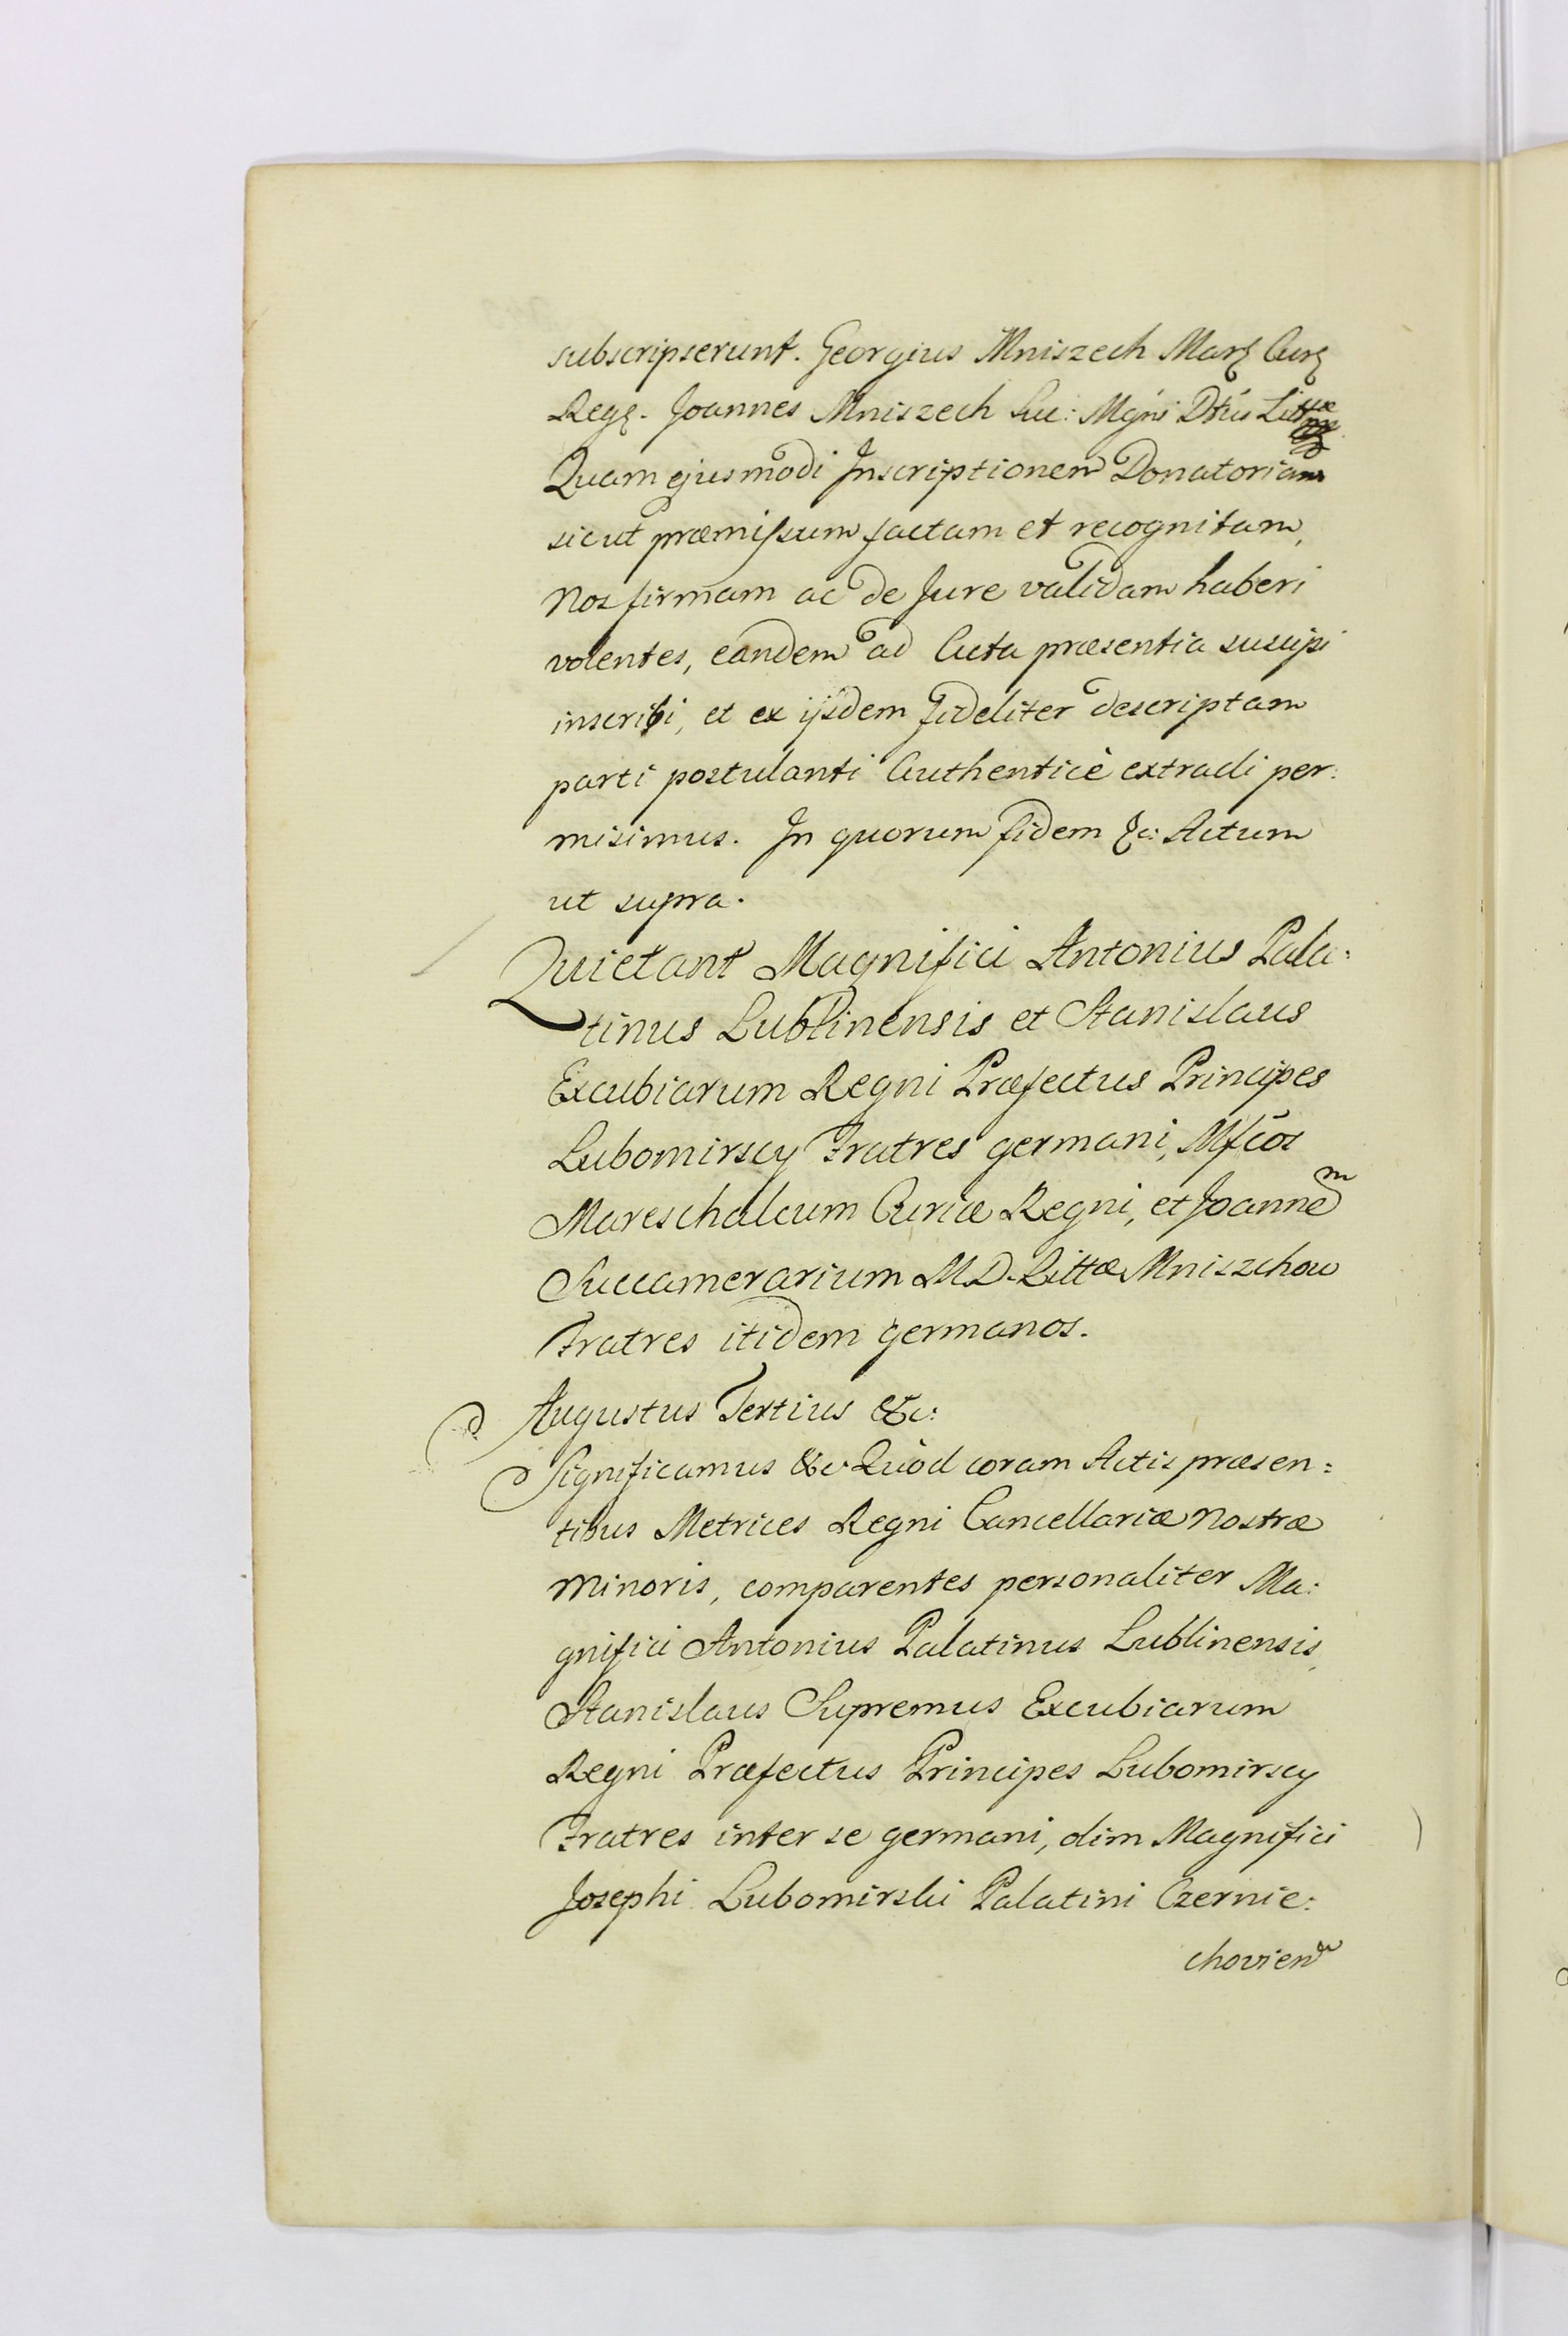 subscripserunt. Georgius Mniszech Mar Cur
Reg. Joannes Mniszech Suc: Mgni Dtus Littuæ
Quam ejusmodi Inscriptionem Donatoriam
sicut præmissum factam et recognitam,
Nos firmam ac de Jure validam haberi
volentes, eandem ad Acta præsentia suscipi
inscribi, et ex ijsdem fideliter descriptam
parti postulanti Authenticè extradi per:
misimus. In quorum fidem &c: Actum
ut supra.
Quietant Magnifici Antonius Pala:
tinus Lublinensis et Stanislaus
Excubiarum Regni Præfectus Principes
Lubomirscy Fratres germani, Mfcos
Mareschalcum Curiæ Regni, et Joannem
Succamerarium M.D. Littæ Mniszchow
Fratres itidem germanos.
Augustus Tertius &c:
Significamus &c Quòd coram Actis præsen:
tibus Metrices Regni Cancellariæ Nostræ
Minoris, comparentes personaliter Ma:
gnifici Antonius Palatinus Lublinensis,
Stanislaus Supremus Excubiarum
Regni Præfectus Principes Lubomirscy
Fratres inter se germani, olim Magnifici
Josephi Lubomirski Palatini Czernie:
chovien